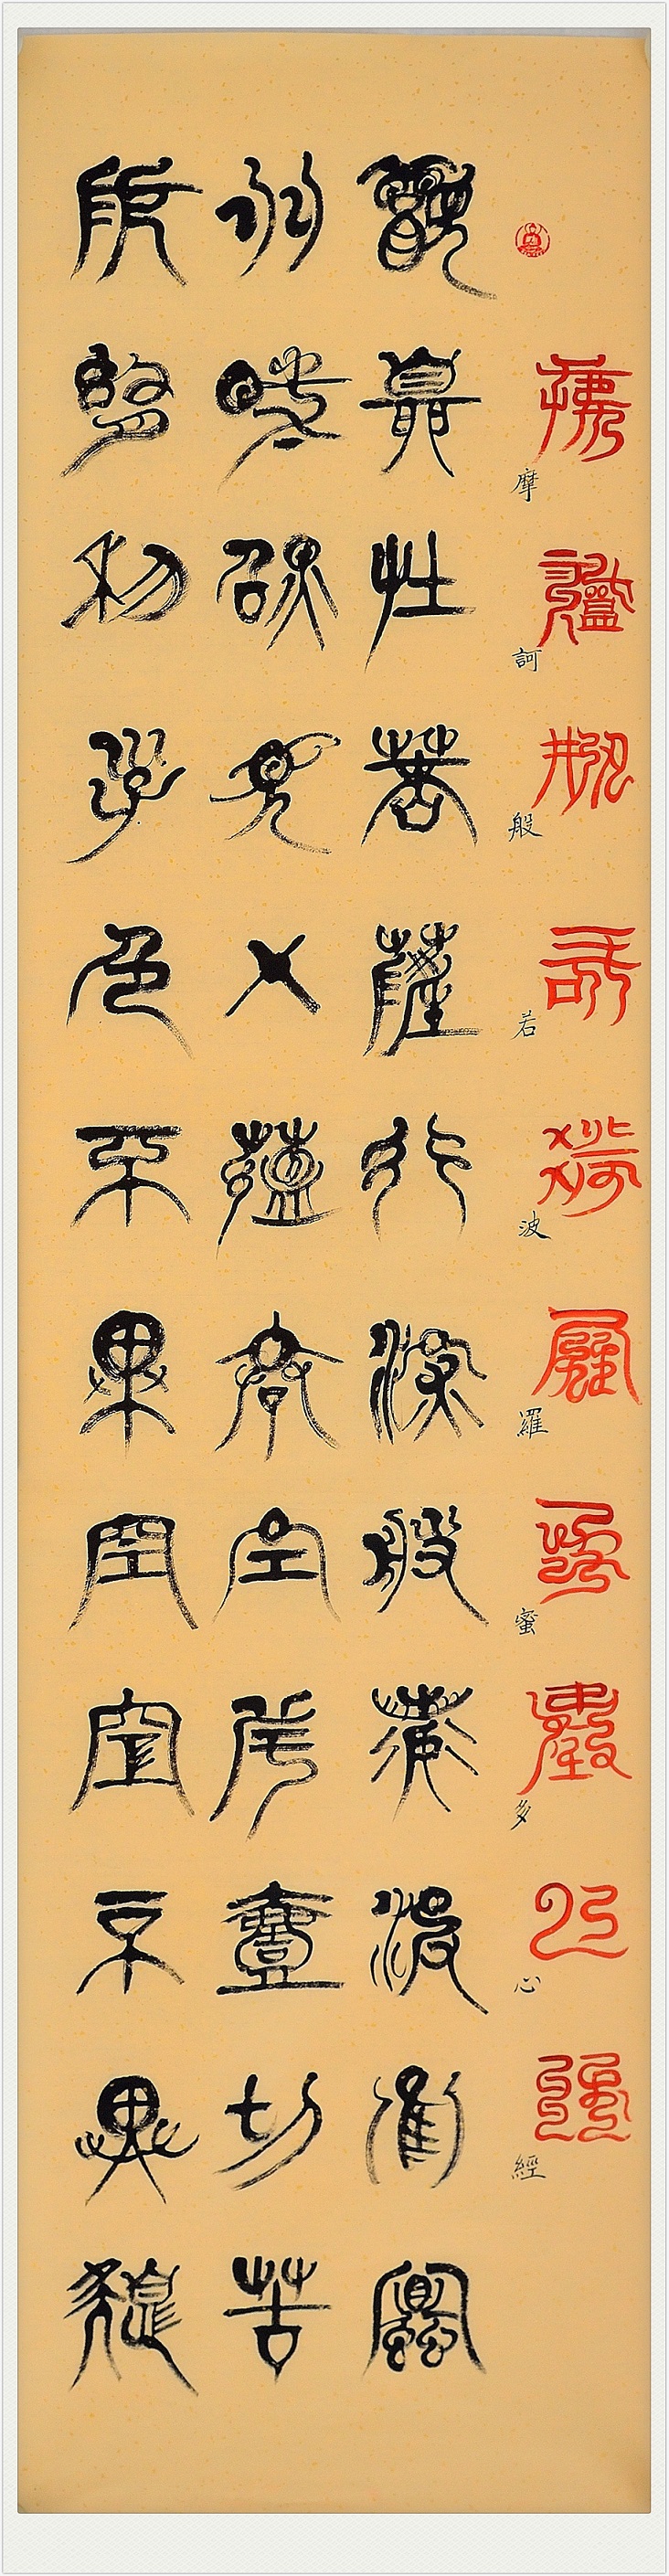 摩訶般若波羅蜜多心經
觀自在菩薩行深般若波羅蜜
多時照見五蘊皆空度一切苦
厄舍利子色不異空空不異色